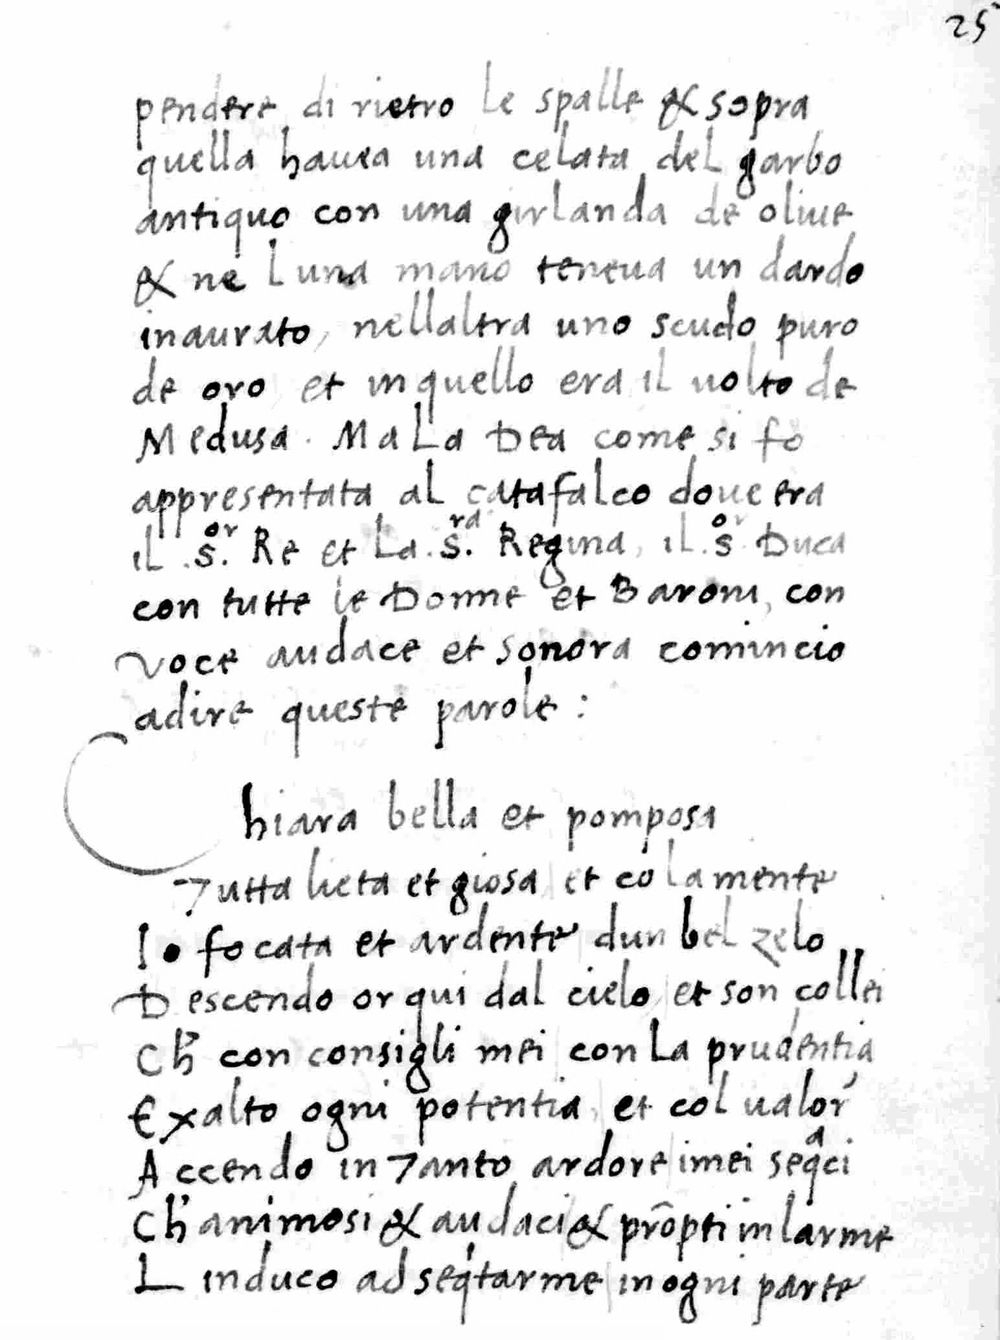 25
pendere di rietro le spalle & sopra
quella hauea una celata del garbo
antiquo con una girlanda de oliue
& ne l una mano teneua un dardo
inaurato, nellaltra uno scudo puro
de oro et in quello era il uolto de
Medusa. Ma La Dea come si fo
appresentata al catafalco doue era
il .S.or Re et La .S.ra Regina, il .S.or Duca
con tutte le Donne et Baroni, con
voce audace et sonora comincio
adire queste parole:
Chiara bella et pomposa
Tutta lieta et giosa et cō la mente
Io focata et ardente dun bel zelo
Descendo or qui dal cielo, et son collei
Ch̄ con consigli mei con La prudentia
Exalto ogni potentia, et col ualor
Accendo in Tanto ardore imei seqaci
Ch̄ animosi & audaci & prōpti in larme
L induco ad seq̄tarme in ogni parte